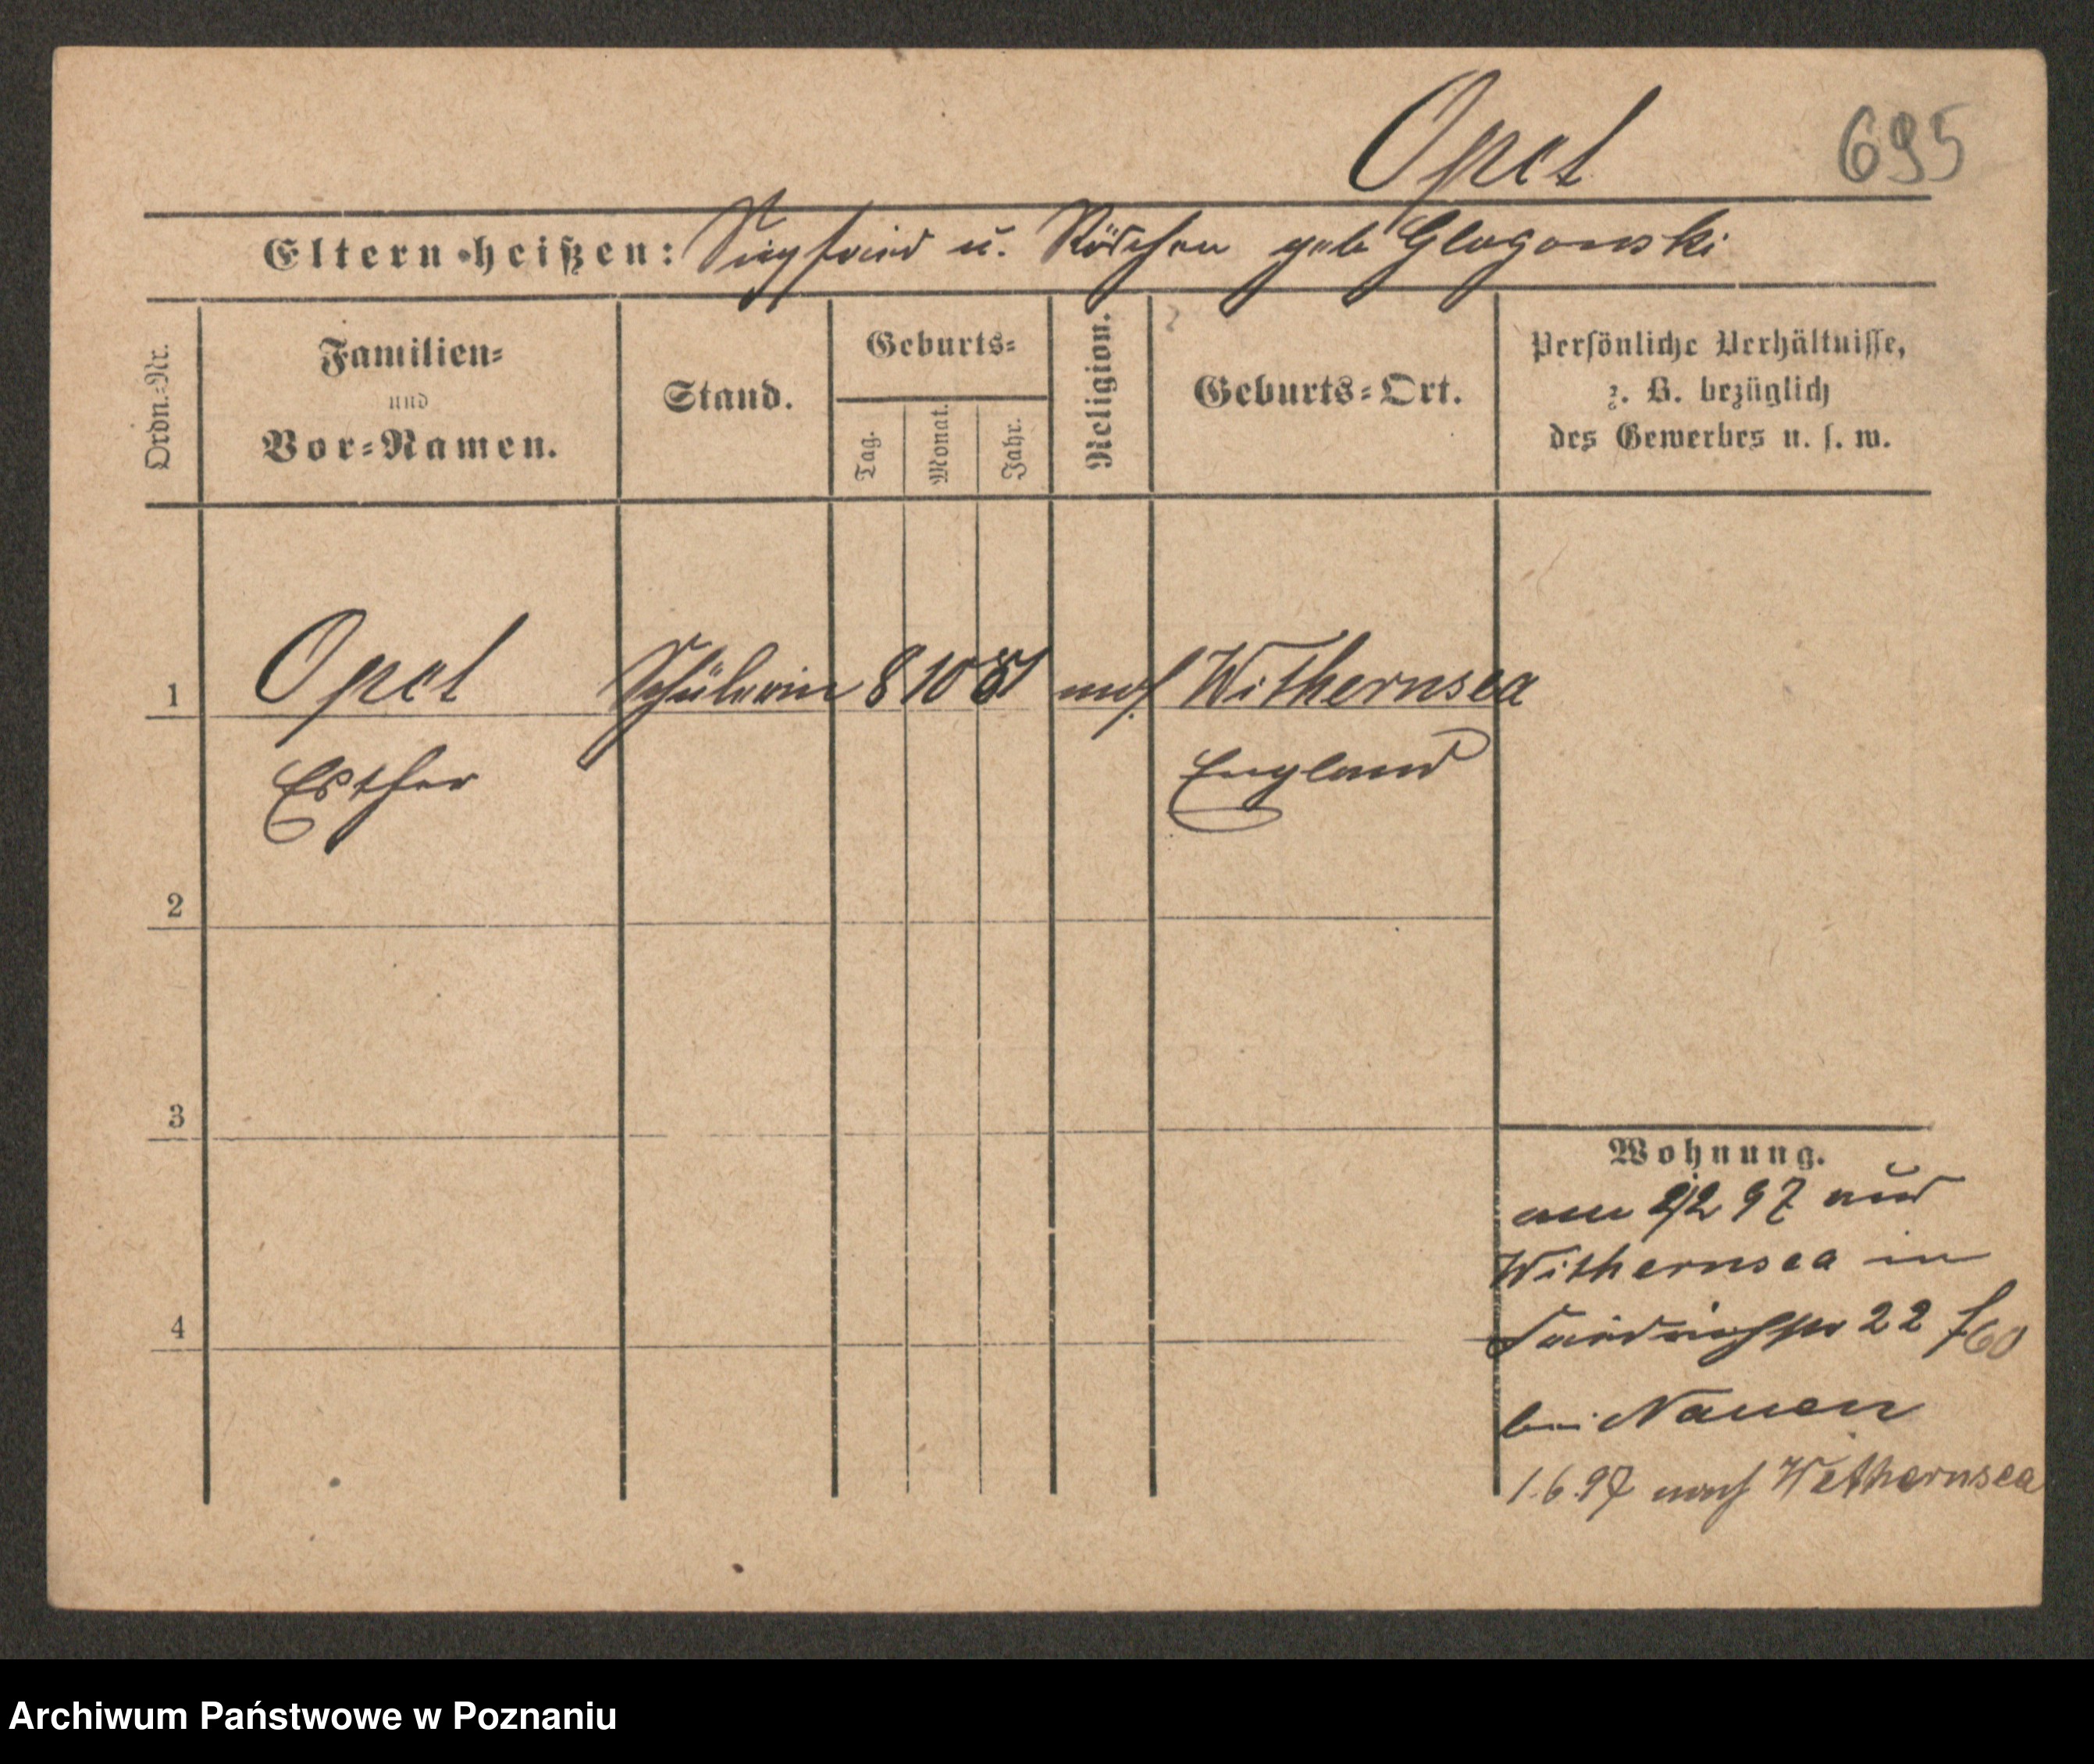 Opet
695
Eltern heißen: Siegfried u. Röschen geb Glogowski
Ordn.-Nr.
Familien-
und
Vor-Namen.
Stand.
Geburts-
Tag.
Monat.
Jahr.
Religion.
Geburts-Ort.
Persönliche Verhältnisse,
z. B. bezüglich
des Gewerbes u. s. w.
1 Opet Schülerin 8 10 81 mos. Withernsea
Esther England
2
3
4
Wohnung.
am 2/2 97 aus
Withernsea in
Friedrichstr 22
bei Nauen
1.6.97 nach Withernsea
Archiwum Państwowe w Poznaniu